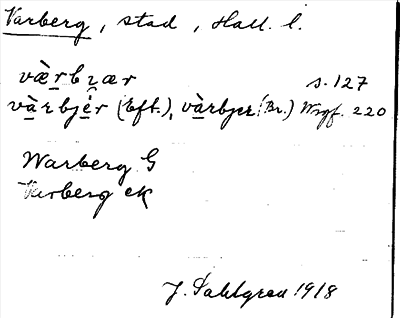 Varberg, stad, Hall. l.
væ̀r̲bɿær s. 127
và̲rbjé̲r (Eft.), và̲rbjer (Br.) Wrgf. 220
Warberg G
Varberg ek
J. Sahlgren 1918